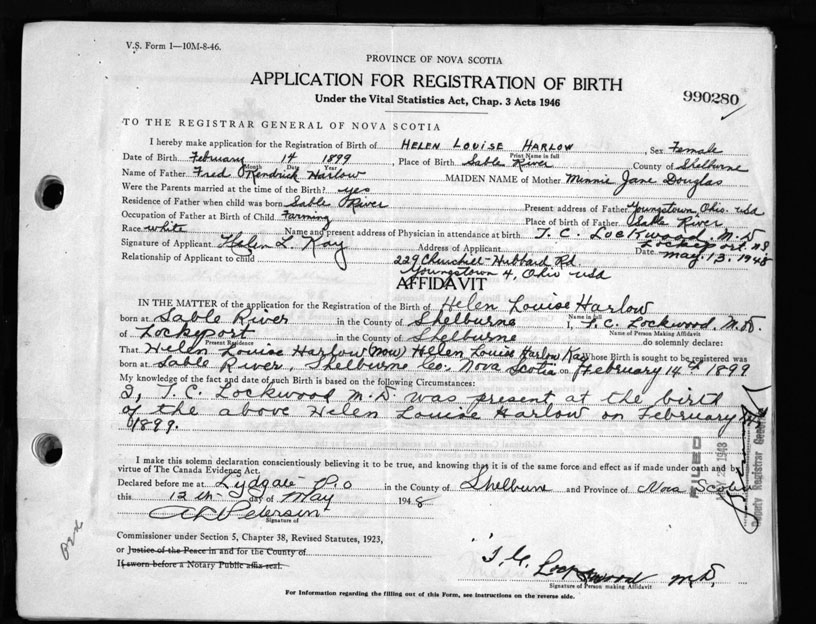 V.S. Form 1—10M-8-46.
PROVINCE OF NOVA SCOTIA
APPLICATION FOR REGISTRATION OF BIRTH
990280
Under the Vital Statistics Act, Chap. 3 Acts 1946
TO THE REGISTRAR GENERAL OF NOVA SCOTIA
I hereby make application for the Registration of Birth of HELEN LOUISE HARLOW, Sex Female
Print Name in full
Date of Birth February 14 1899, Place of Birth Sable River County of Shelburne
Month Date Year
Name of Father Fred Kendrick Harlow MAIDEN NAME of Mother Minnie Jane Douglas
Were the Parents married at time of the Birth? yes
Residence of Father when child was born Sable River Present address of Father Youngstown, Ohio. usa
Occupation of Father at Birth of Child Farming Place of birth of Father Sable River
Race white Name and present address of Physician in attendance at birth T. C. Lockwood. M.D
Lockeport. NS
Signature of Applicant Helen L. Kay Address of Applicant Date May. 13. 1948
Relationship of Applicant to child 229 Churchill-Hubbard Rd
Youngstown 4, Ohio usa
AFFIDAVIT
IN THE MATTER of the application for the Registration of Birth of Helen Louise Harlow
Name in full
born at Sable River in the County of Shelburne I, T. C. Lockwood. M.D.
Name of Person Making Affidavit
of Lockeport in the County of Shelburne do solemnly declare:
Present Residence
That Helen Louise Harlow (now) Helen Louise Harlow Kay whose Birth is sought to be registered was
born at Sable River, Shelburne Co. Nova Scotia on February 14th 1899
My knowledge of the fact and date of such Birth is based on the following Circumstances:
I, T. C. Lockwood M.D. was present at the birth
of the above Helen Louise Harlow on February 14th
1899.
I make this solemn declaration conscientiously believing it to be true, and knowing that it is of the same force and effect as if made under oath and by
virtue of The Canada Evidence Act.
Declared before me at Lydgate P.O in the County of Shelburne and Province of Nova Scotia
this 12th day of May 1948
A L Peterson
Signature of
Commissioner under Section 5, Chapter 38, Revised Statutes, 1923,
or Justice of the Peace in and for the County of
If sworn before a Notary Public affix seal.
T. C. Lockwood M.D.
Signature of Person making Affidavit
For Information regarding the filling out of this Form, see instructions on the reverse side.
FILED
1948
Deputy Registrar General